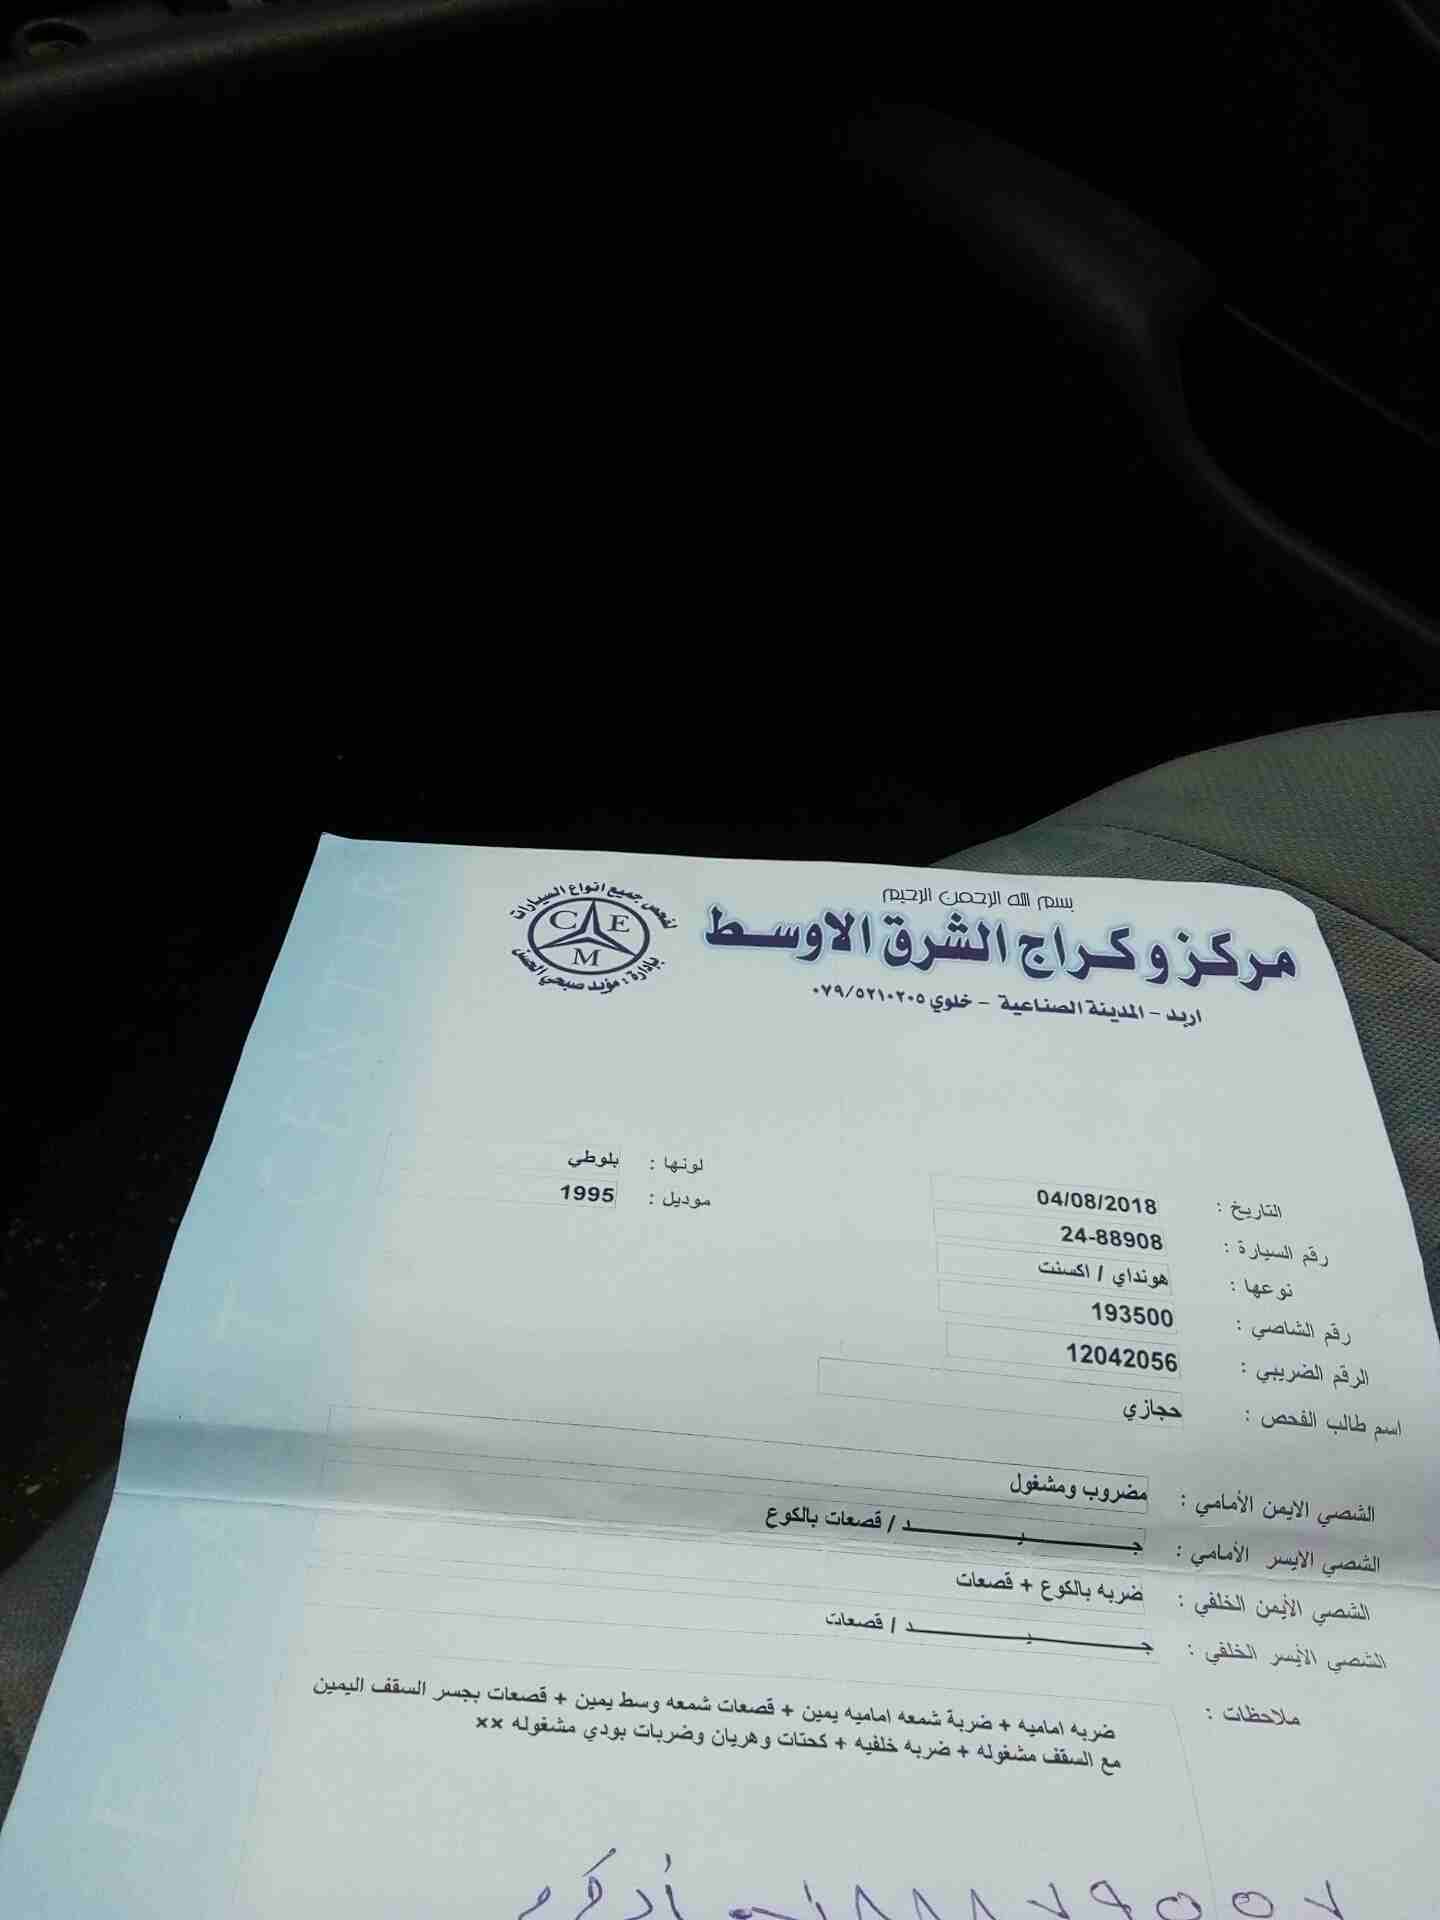 بسم الله الرحمن الرحيم
مركز وكراج الشرق الاوسط
اربد - المدينة الصناعية - خلوي ٠٧٩/٥٢١٠٢٠٥
لفحص جميع انواع السيارات
C E
M
بإدارة : مؤيد صبحي الحسن
التاريخ : 04/08/2018
لونها : بلوطي
رقم السيارة : 24-88908
موديل : 1995
نوعها : هونداي / اكسنت
رقم الشاصي : 193500
الرقم الضريبي : 12042056
اسم طالب الفحص : حجازي
الشصي الايمن الأمامي : مضروب ومشغول
الشصي الايسر الأمامي : جـــيـــد / قصعات بالكوع
الشصي الأيمن الخلفي : ضربه بالكوع + قصعات
الشصي الأيسر الخلفي : جـــيـــد / قصعات
ملاحظات : ضربه اماميه + ضربة شمعه اماميه يمين + قصعات شمعه وسط يمين + قصعات بجسر السقف اليمين
مع السقف مشغوله + ضربه خلفيه + كحتات وهريان وضربات بودي مشغوله ××